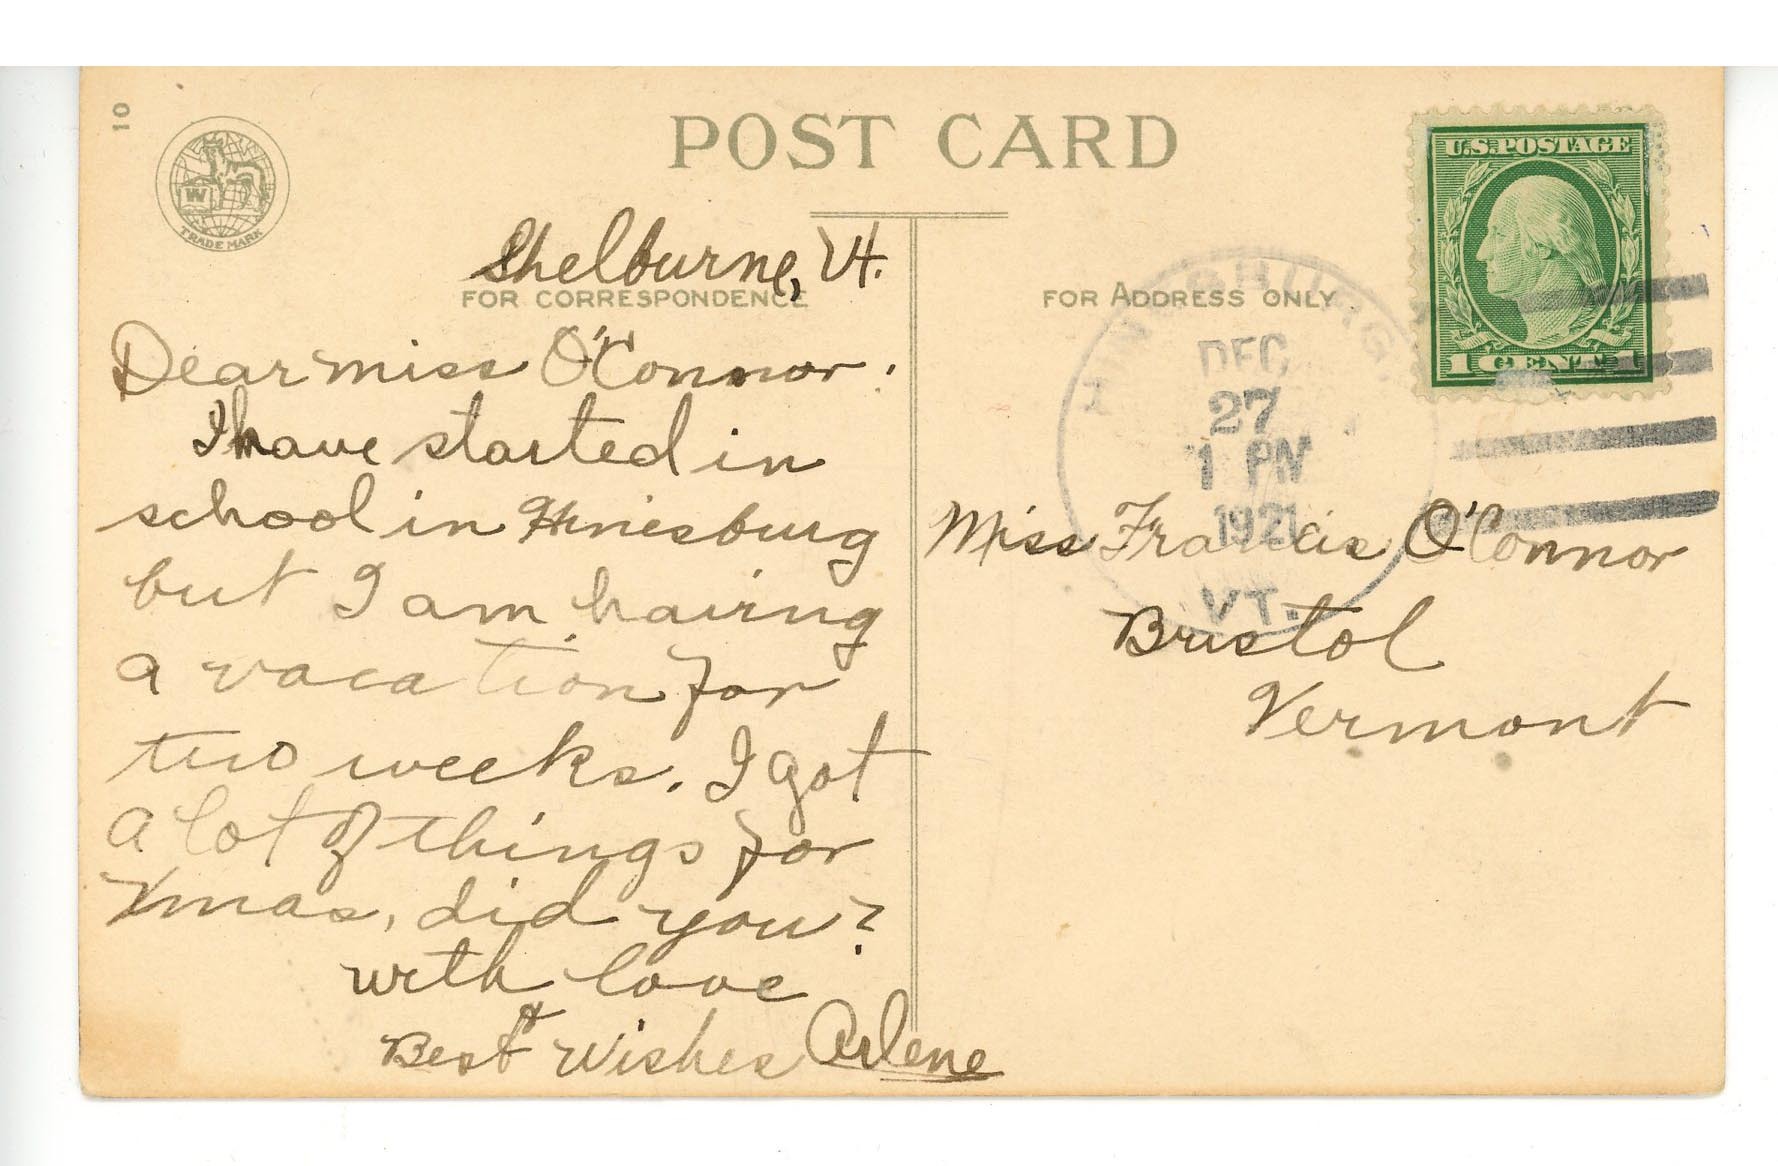 10
POST CARD
W
TRADE MARK
U.S. POSTAGE
1 CENT 1
Shelburne, Vt.
FOR CORRESPONDENCE
Dear miss O'Connor.
I have started in
school in Hinesburg
but I am haiving
a vacation for
two weeks. I got
a lot of things for
Xmas, did you?
with love
&
Best Wishes Arlene
FOR ADDRESS ONLY
HINESBURG.
DEC
27
1 PM
1921
VT.
Miss Francis O'Connor
Bristol
Vermont